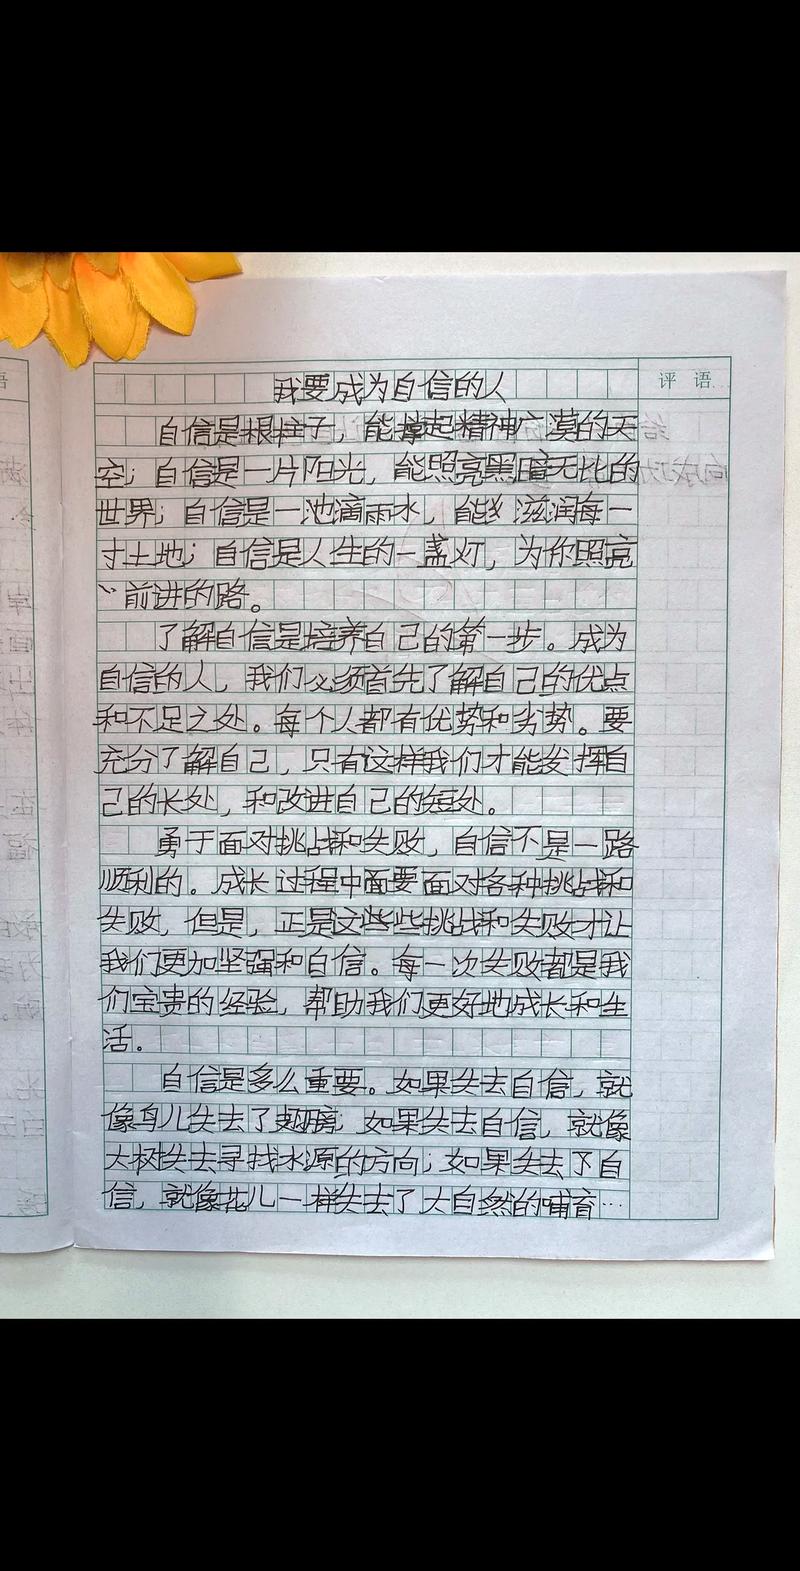 我要成为自信的人
评语
自信是根柱子，能撑起精神广漠的天
空；自信是一片阳光，能照亮黑暗无比的
世界；自信是一池滴雨水，能 滋润每一
寸土地；自信是人生的一盏灯，为你照亮
前进的路。
了解自信是培养自己的第一步。成为
自信的人，我们必须首先了解自己的优点
和不足之处。每个人都有优势和劣势。要
充分了解自己，只有这样我们才能发挥自
己的长处，和改进自己的短处。
勇于面对挑战和失败，自信不是一路
顺利的。成长过程中面要面对各种挑战和
失败，但是，正是这些些挑战和失败才让
我们更加坚强和自信。每一次失败都是我
们宝贵的经验，帮助我们更好地成长和生
活。
自信是多么重要。如果失去自信，就
像鸟儿失去了翅膀；如果失去自信，就像
大树失去寻找水源的方向；如果失去了自
信，就像花儿一样失去了大自然的哺育…